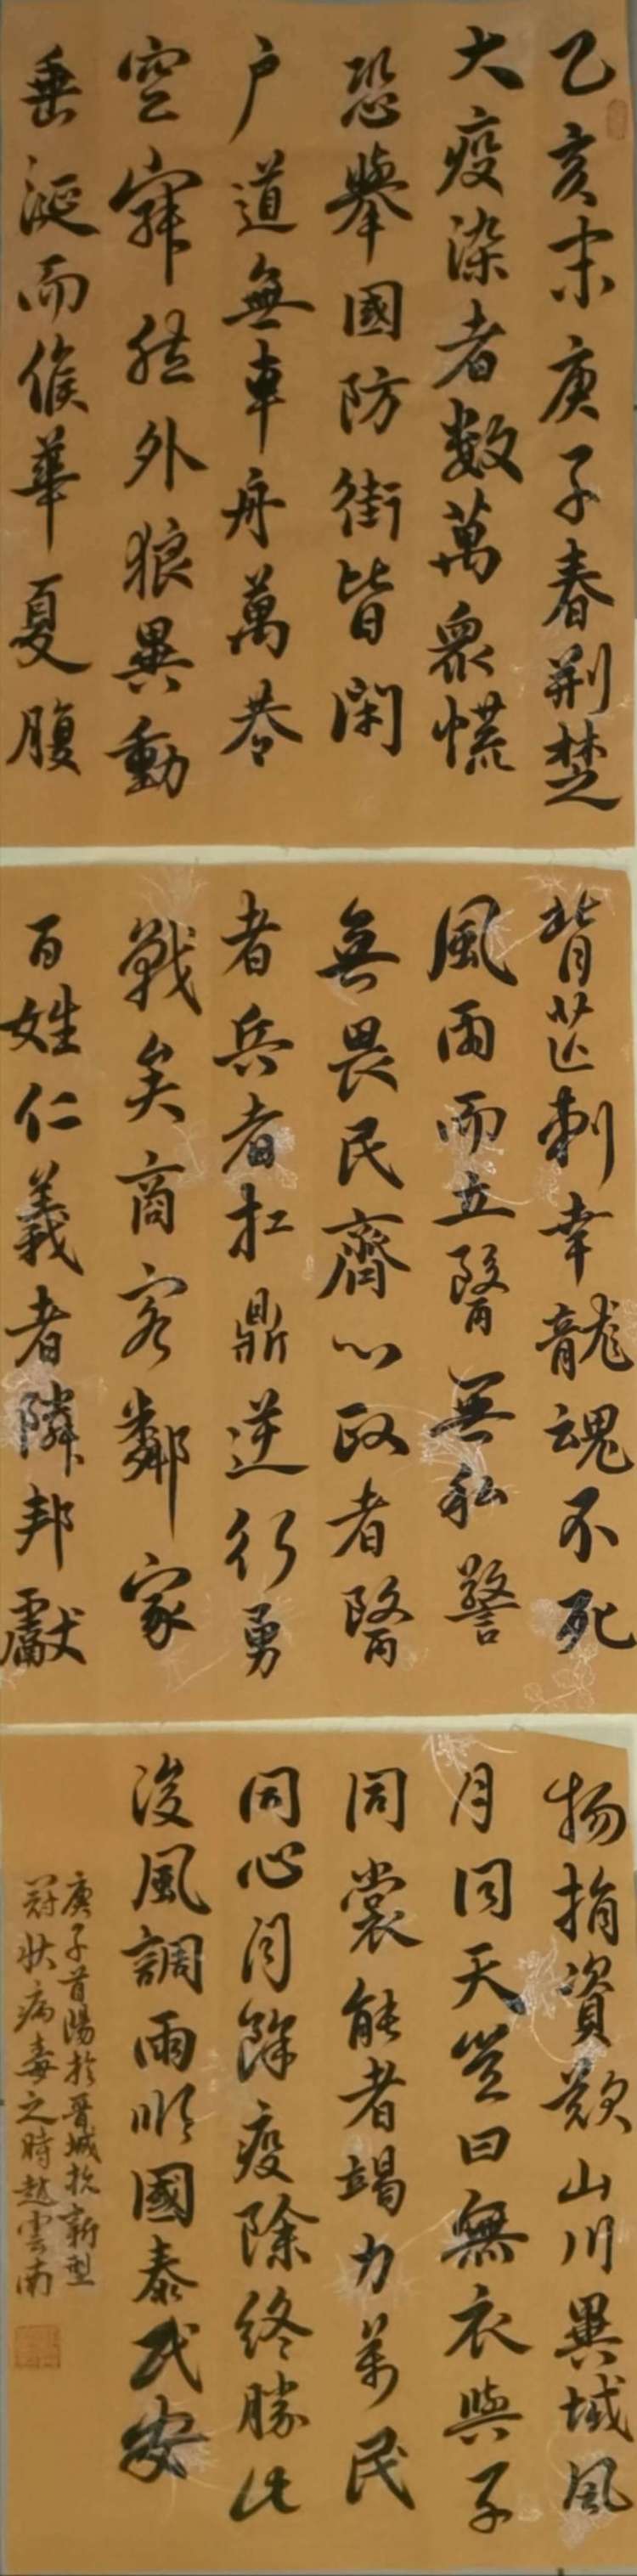 乙亥末庚子春荆楚
大疫染者数萬衆慌
恐舉國防街皆閑
户道無車舟萬巷
空寂然外狼異動
垂涎而候華夏腹
背芒刺幸龍魂不死
風雨而立醫無私警
無畏民齊心政者醫
者兵者扛鼎逆行勇
戰矣商客鄰家
百姓仁義者隣邦獻
物捐資歎山川異域風
月同天豈曰無衣與子
同裳能者竭力萬民
同心月餘疫除終勝此
後風調雨順國泰民安
庚子首陽於晋城抗新型
冠狀病毒之時趙雲南